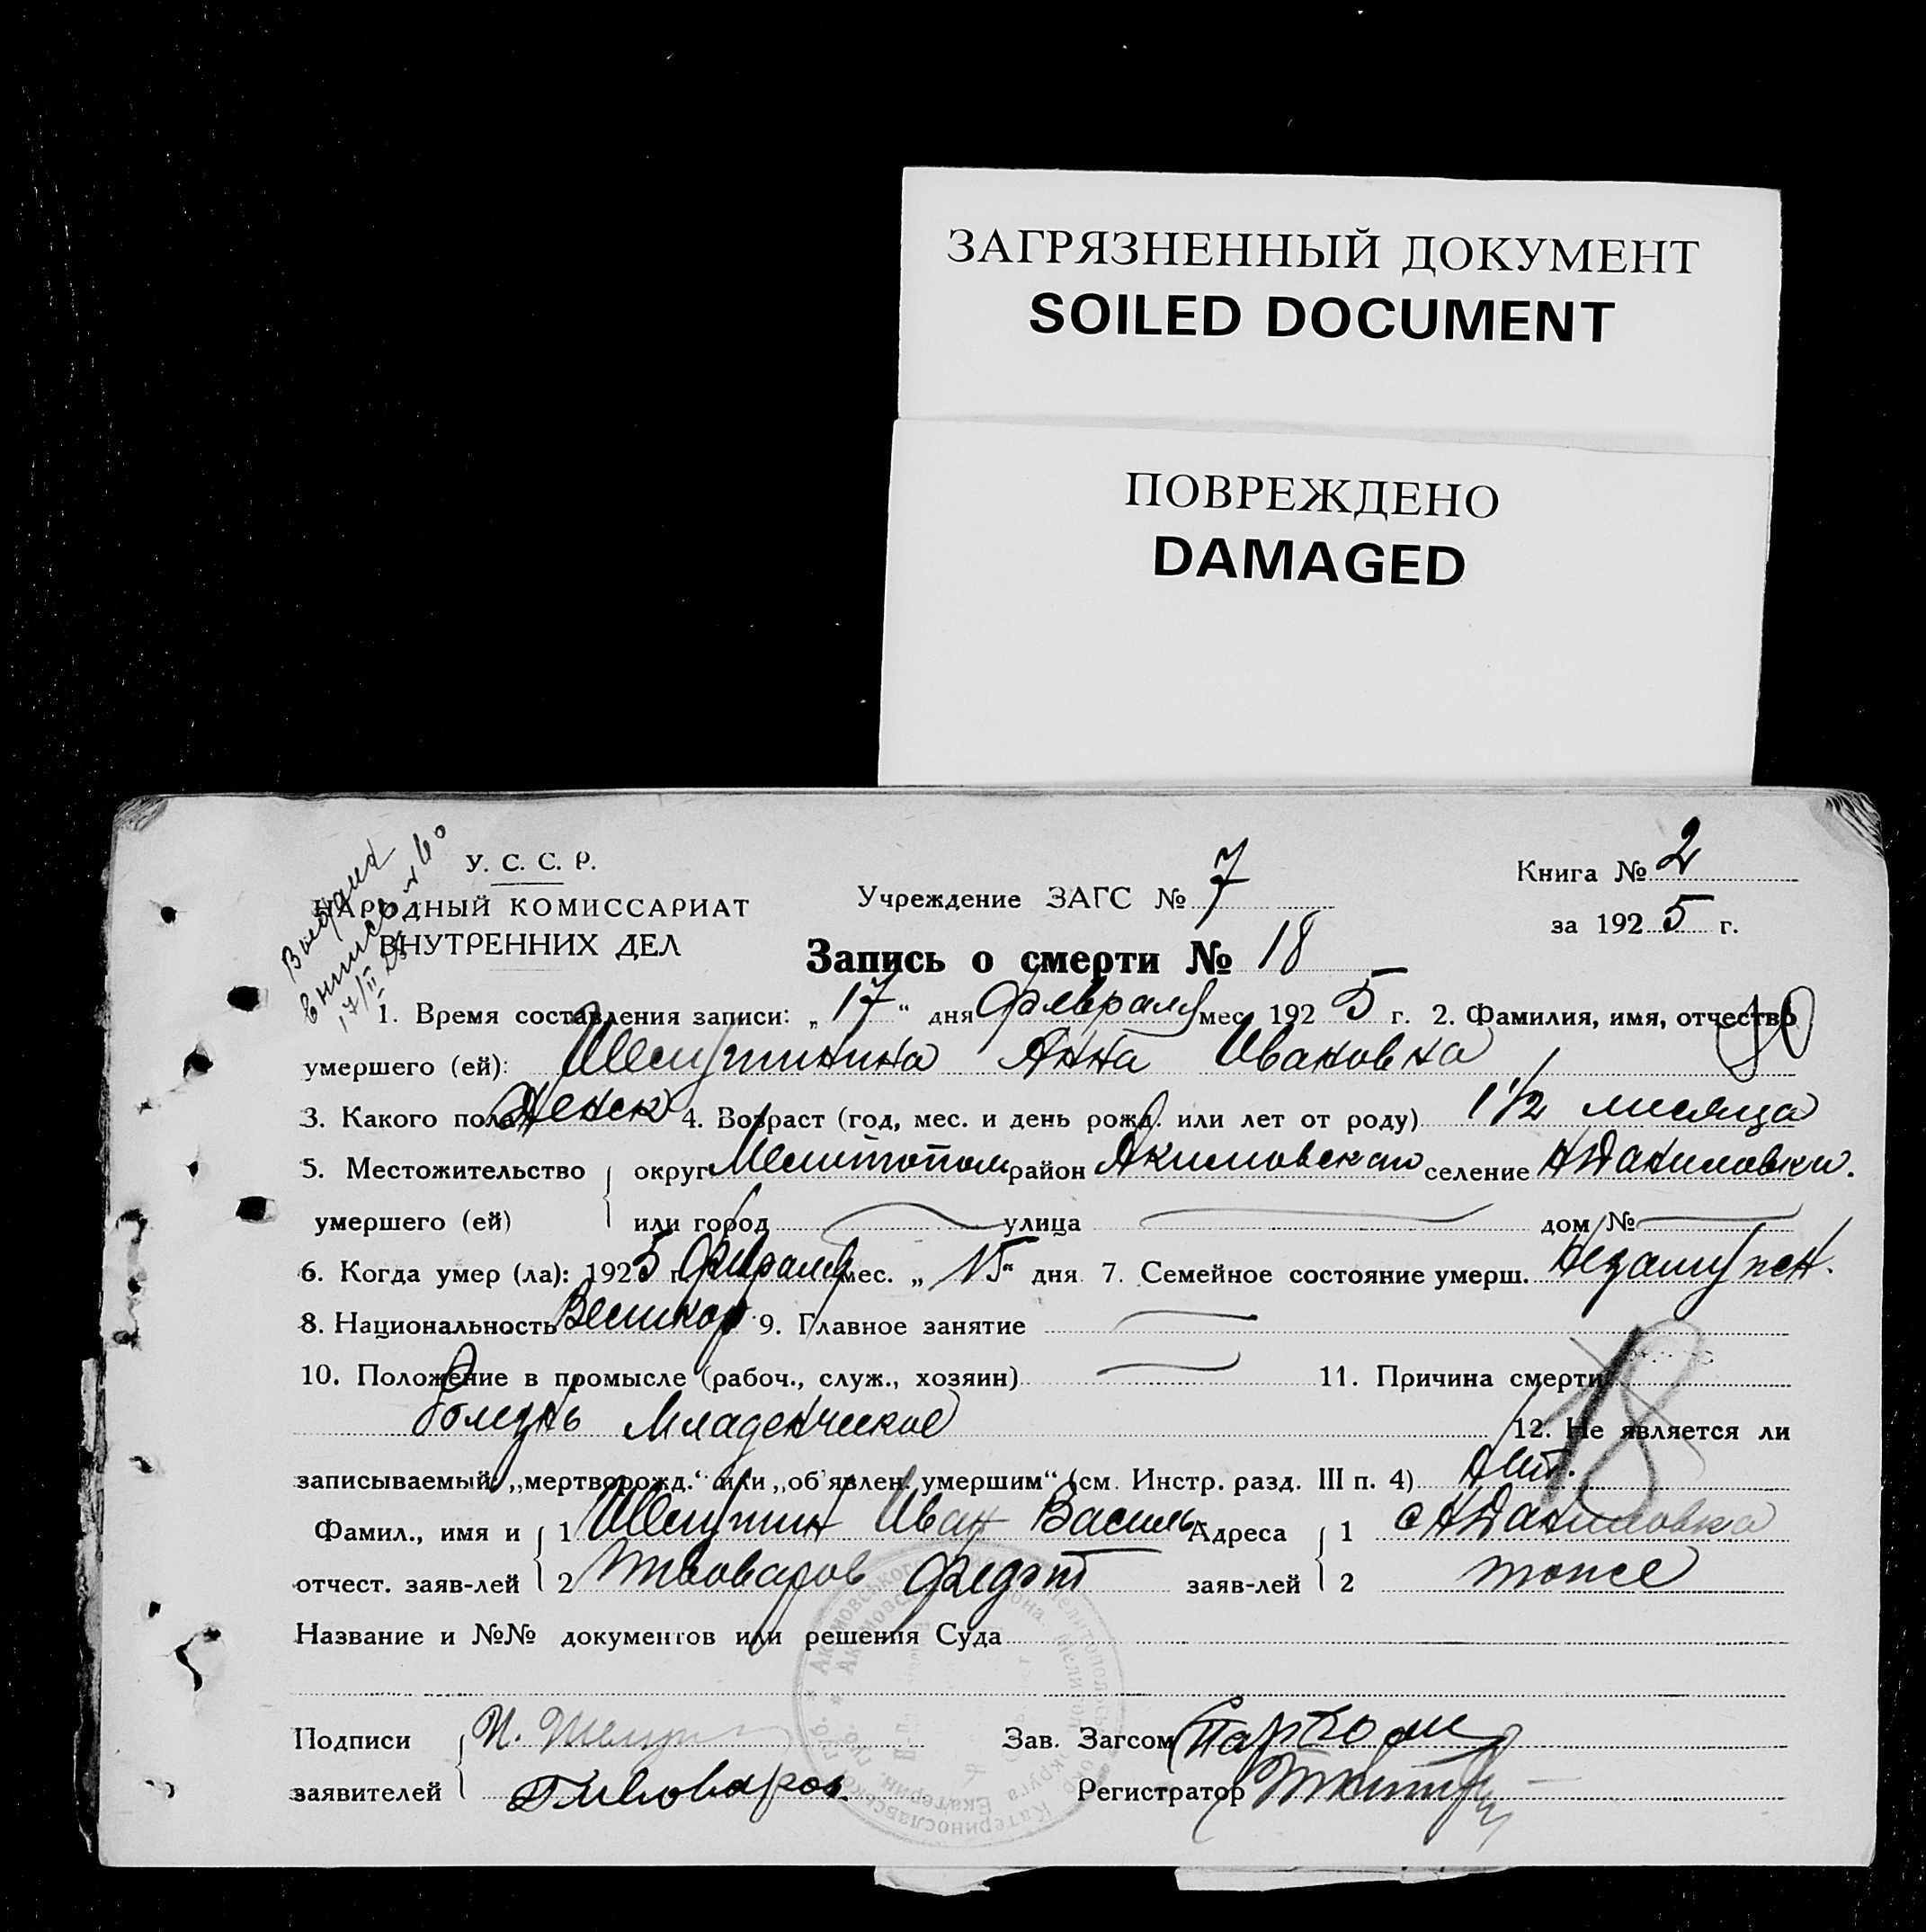 ЗАГРЯЗНЕННЫЙ ДОКУМЕНТ
SOILED DOCUMENT
ПОВРЕЖДЕНО
DAMAGED
У. С. С. Р.
НАРОДНЫЙ КОМИССАРИАТ
ВНУТРЕННИХ ДЕЛ
17/II 25
Учреждение ЗАГС № 7
Книга № 2
за 1925 г.
Запись о смерти № 18
1. Время составления записи: „17“ дня февраля мес. 1925 г. 2. Фамилия, имя, отчество
умершего (ей): Анна Ивановна
3. Какого пола Женск 4. Возраст (год, мес. и день рожд. или лет от роду) 1 1/2 месяца
5. Местожительство округ Мелитополь район Акимовский селение НДаниловки.
умершего (ей) или город — улица — дом № —
6. Когда умер (ла): 1925 г. февраля мес. „15“ дня 7. Семейное состояние умерш. Незамужен.
8. Национальность Великор 9. Главное занятие —
10. Положение в промысле (рабоч., служ., хозяин) — 11. Причина смерти
болезнь Младенческое 12. Не является ли
записываемый: „мертворожд.“ или „об'явлен. умершим“ (см. Инстр. разд. III п. 4) Нет.
18
Фамил., имя и 1 Иван Василь Адреса 1 с НДаниловка
отчест. заяв-лей 2 Пивоваров Федот заяв-лей 2 тоже
Название и №№ документов или решения Суда
Подписи Зав. Загсом
заявителей Пивоваров. Регистратор